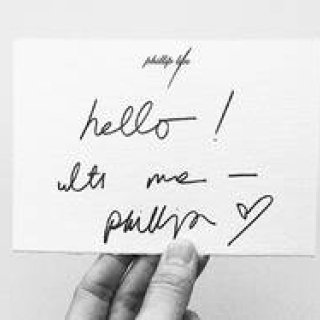 phillip lim
hello!
ults me –
phillip